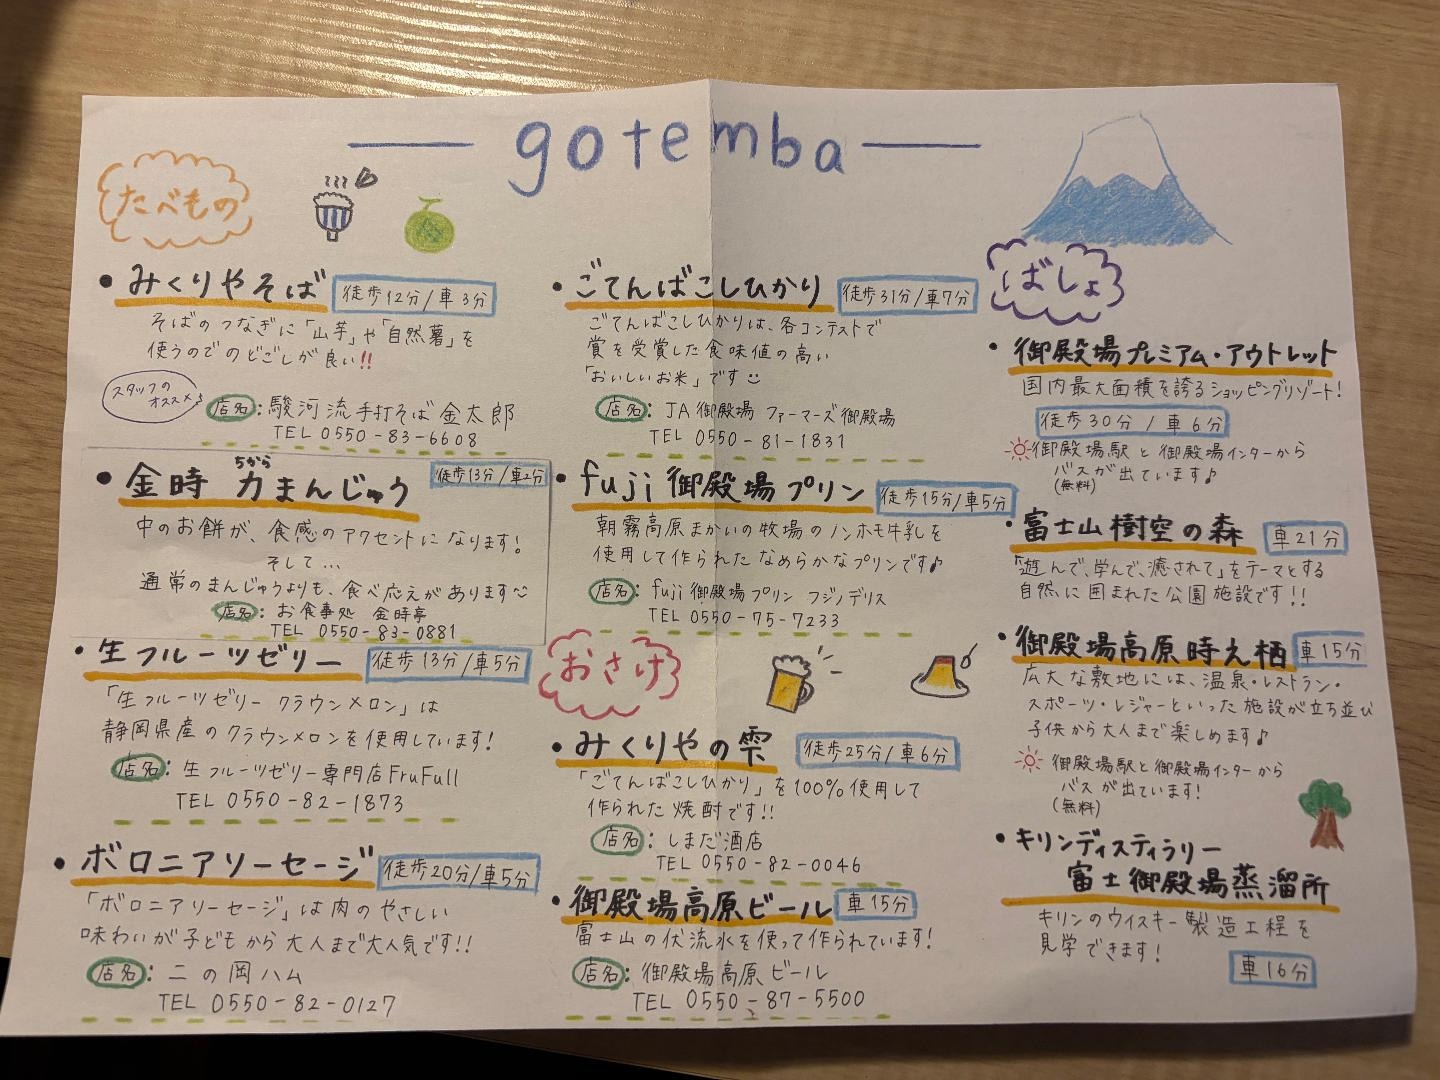 gotemba
たべもの
・みくりやそば 徒歩12分/車3分
そばのつなぎに「山芋」や「自然薯」を
使うのでのどごしが良い!!
スタッフの
オススメ♪
店名:駿河流手打そば金太郎
TEL 0550-83-6608
・金時力まんじゅう 徒歩13分/車2分
ちから
中のお餅が、食感のアクセントになります!
そして…
通常のまんじゅうよりも、食べ応えがあります
店名:お食事処 金時亭
TEL 0550-83-0881
・生フルーツゼリー 徒歩13分/車5分
「生フルーツゼリー クラウンメロン」は
静岡県産のクラウンメロンを使用しています!
店名:生フルーツゼリー専門店FruFull
TEL 0550-82-1873
・ボロニアソーセージ 徒歩20分/車5分
「ボロニアソーセージ」は肉のやさしい
味わいが子どもから大人まで大人気です!!
店名:二の岡ハム
TEL 0550-82-0127
・ごてんばこしひかり 徒歩31分/車7分
ごてんばこしひかりは、各コンテストで
賞を受賞した食味値の高い
「おいしいお米」です
店名:JA御殿場 ファーマーズ御殿場
TEL 0550-81-1831
・fuji御殿場プリン 徒歩15分/車5分
朝霧高原まかいの牧場のノンホモ牛乳を
使用して作られたなめらかなプリンです♪
店名:fuji御殿場プリン フジノデリス
TEL 0550-75-7233
おさけ
・みくりやの雫 徒歩25分/車6分
「ごてんばこしひかり」を100%使用して
作られた焼酎です!!
店名:しまだ酒店
TEL 0550-82-0046
・御殿場高原ビール 車15分
富士山の伏流水を使って作られています!
店名:御殿場高原ビール
TEL 0550-87-5500
ばしょ
・御殿場プレミアム・アウトレット
国内最大面積を誇るショッピングリゾート!
徒歩30分/車6分
御殿場駅と御殿場インターから
バスが出ています♪
(無料)
・富士山樹空の森 車21分
「遊んで、学んで、癒されて」をテーマとする
自然に囲まれた公園施設です!!
・御殿場高原時之栖 車15分
広大な敷地には、温泉・レストラン・
スポーツ・レジャーといった施設が立ち並び
子供から大人まで楽しめます♪
御殿場駅と御殿場インターから
バスが出ています!
(無料)
・キリンディスティラリー
富士御殿場蒸溜所
キリンのウイスキー製造工程を
見学できます!
車16分